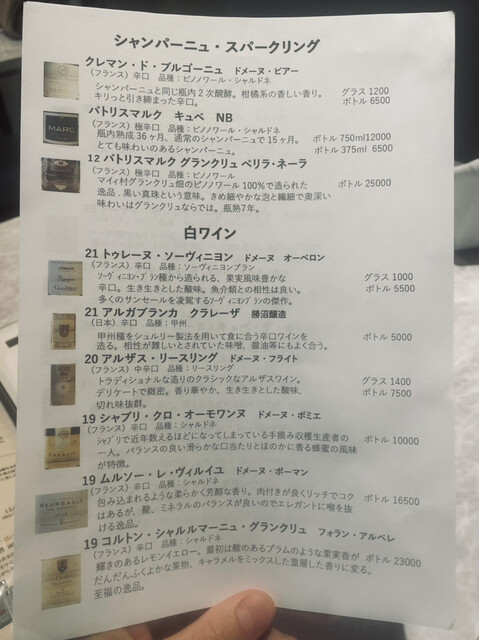 シャンパーニュ・スパークリング
クレマン・ド・ブルゴーニュ ドメーヌ・ビアー
(フランス) 辛口 品種:ピノノワール・シャルドネ
シャンパーニュと同じ瓶内2次醗酵。柑橘系の香しい香り。 グラス 1200
キリっと引き締まった辛口。 ボトル 6500
パトリスマルク キュベ NB
MARC
(フランス) 極辛口 品種:ピノノワール・シャルドネ
瓶内熟成36ヶ月、通常のシャンパーニュで15ヶ月。 ボトル 750ml12000
とても味わいのあるシャンパーニュ。 ボトル 375ml 6500
12 パトリスマルク グランクリュ ペリラ・ネーラ
(フランス) 極辛口 品種:ピノノワール
マイィ村グランクリュ畑のピノノワール100%で造られた ボトル 25000
逸品.黒い真珠という意味。きめ細やかな泡と繊細で奥深い
味わいはグランクリュならでは。瓶熟7年。
白ワイン
21 トゥレーヌ・ソーヴィニヨン ドメーヌ オーベロン
(フランス) 辛口 品種:ソーヴィニヨンブラン
ソーヴィニヨン・ブラン種から造られる、果実風味豊かな グラス 1000
辛口。生き生きとした酸味。魚介類との相性は良い。 ボトル 5500
多くのサンセールを凌駕するソーヴィニヨンブランの傑作。
21 アルガブランカ クラレーザ 勝沼醸造
(日本) 辛口 品種:甲州
甲州種をシュルリー製法を用いて食に合う辛口ワインを ボトル 5000
造る。相性が難しいとされていた味噌、醤油等にもよく合う。
20 アルザス・リースリング ドメーヌ・フライト
(フランス) 中辛口 品種:リースリング
トラディショナルな造りのクラシックなアルザスワイン。 グラス 1400
デリケートで緻密。香り華やか、生き生きとした酸味、 ボトル 7500
切れ味抜群。
19 シャブリ・クロ・オーモワンヌ ドメーヌ・ポミエ
(フランス) 辛口 品種:シャルドネ
シャブリで近年数えるほどになってしまっている手摘み収穫生産者の ボトル 10000
一人。バランスの良い滑らかな口当たりとほのかに香る蜂蜜の風味
が特徴。
19 ムルソー・レ・ヴィルイユ ドメーヌ・ボーマン
MEURSAULT
(フランス) 辛口 品種:シャルドネ
包み込まれるような柔らかく芳醇な香り。肉付きが良くリッチでコク ボトル 16500
はあるが、酸、ミネラルのバランスが良いのでエレガントに喉を抜
ける逸品。
19 コルトン・シャルルマーニュ・グランクリュ フォラン・アルベレ
(フランス) 辛口 品種:シャルドネ
輝きのあるレモンイエロー。最初は酸のあるプラムのような果実香が ボトル 23000
だんだんふくよかな果物、キャラメルをミックスした重層した香りに変る。
至福の逸品。